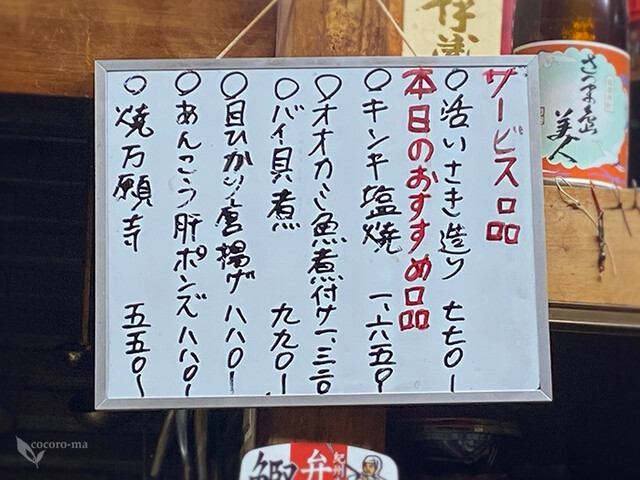 サービス品
○活いさき造り 七七〇ー
本日のおすすめ品
○キンキ塩焼 一、六五〇
○オオカミ魚煮付け 一、三二〇
○バイ貝煮 九九〇ー
○目ひかり唐揚げ 八八〇ー
○あんこう肝ポンズ 八八〇ー
○焼万願寺 五五〇ー
さつま島
美人
弁
紀州
cocoro-ma